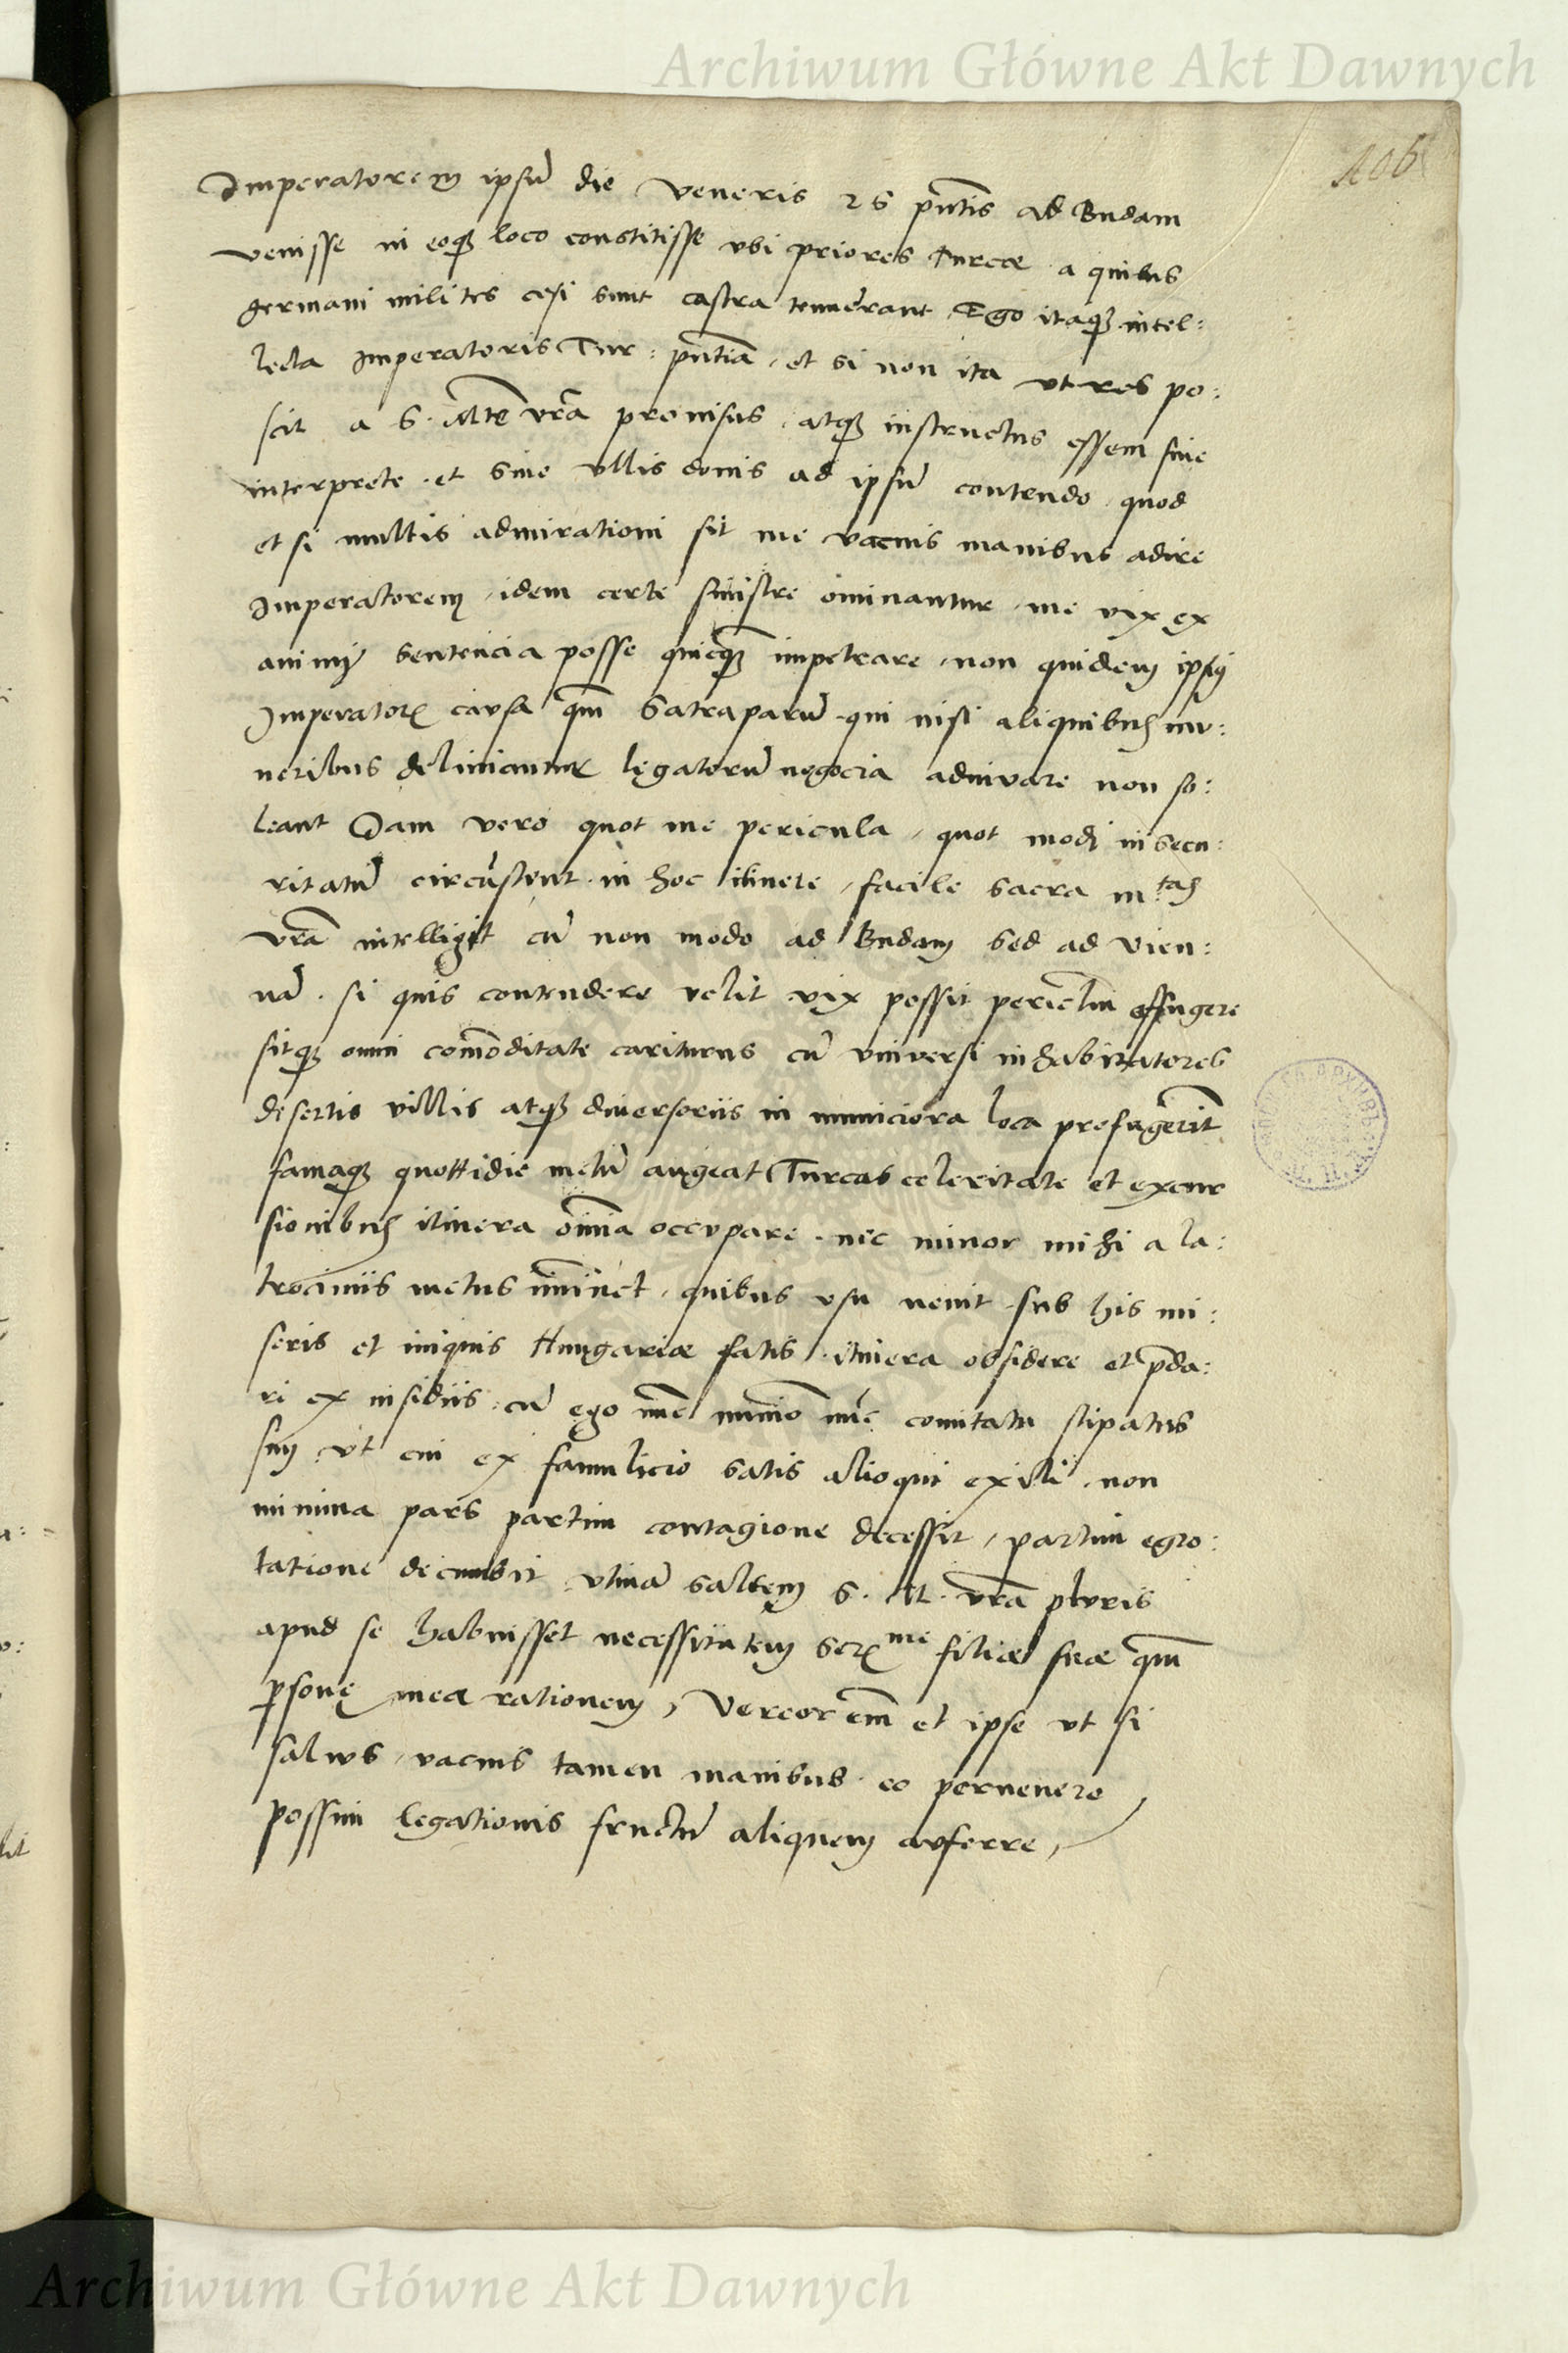 Archiwum Główne Akt Dawnych
406
Imperatorem ipsū die veneris 26 pn̄tis ad Budam
venisse in eoq̨ loco constitisse vbi priores Turcæ a quibus
germani milites cesi sunt castra tenuerant Ego itaq̨ intel:
lecta Imperatoris Tur: pn̄tia, et si non ita vt res po:
scit a S. Mte vr̄a prouisus, atq̨ instructus essem sine
interprete et sine vllis donis ad ipsū contendo quod
et si multis admirationi sit me vacuis manibus adire
Imperatorem, idem certe sinistre ominantur, me vix ex
animi sentencia posse quicq̨ impetrare, non quidem ipsius
Imperatoris causa qm̄ Satraparū qui nisi aliquibus mu:
neribus deliniantur legatorū negocia adiuuare non so:
leant Iam vero quot me pericula, quot modi insecu:
ritatū circūstent in hoc itinere, facile sacra mtas
vr̄a intelligit cū non modo ad Budam sed ad Vien:
nā. si quis contendere velit vix possit periclm̄ effugere
sitq̨ omni com̄oditate cariturus cū vniuersi inhabitatores
desertis villis atq̨ diuersoriis in municiora loca profugerint
famaq̨ quottidie metū augeat Turcas celeritate et excur
sionibus itinera om̄ia occupare. nec minor mihi a la:
trociniis metus im̄inet, quibus vsu uenit sub his mi:
seris et iniquis Hungariæ fatis itinera obsidere et p̄da:
ri ex insidiis, cū ego nūc nimio nūc comitatu stipatus
sim vt cui ex famulicio satis alioqui exili, non
minima pars partim contagione decessit, partim egro:
tatione decumbit vtinā saltem S. M. vr̄a pluris
apud se habuisset necessitatem Serme filiæ suæ qm̄
p̄sonę meæ rationem, Vereor em̄ et ipse vt si
saluus, vacuis tamen manibus eo peruenero
possim legationis fructū aliquem auferre,
Archiwum Główne Akt Dawnych